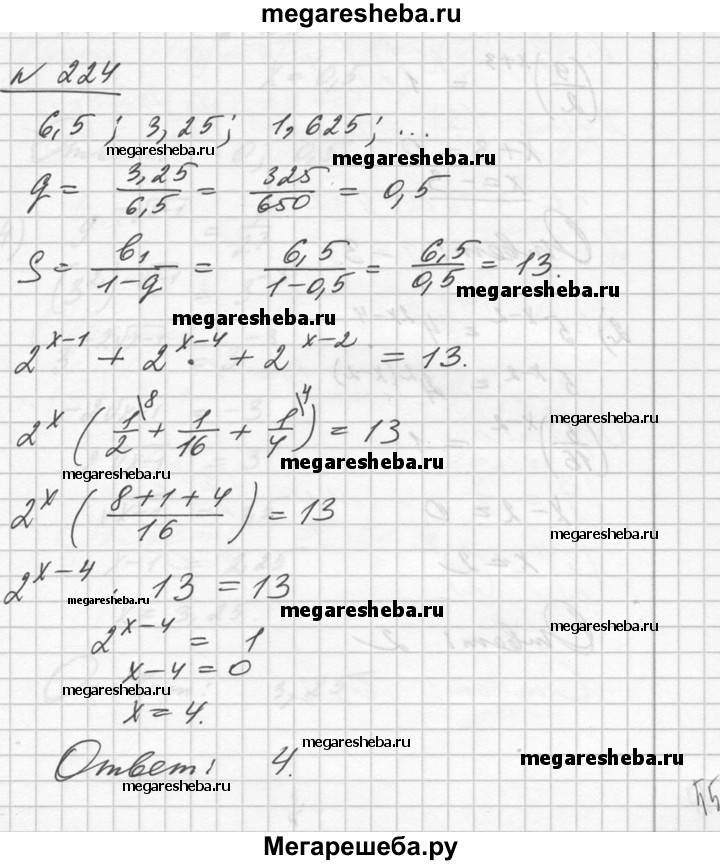 megaresheba.ru
N 224
6,5 ; 3,25 ; 1,625 ; ...
megaresheba.ru megaresheba.ru
q = 3,25/6,5 = 325/650 = 0,5
S = b₁/(1-q) = 6,5/(1-0,5) = 6,5/0,5 = 13.
megaresheba.ru
megaresheba.ru
2^(x-1) + 2^(x-4) + 2^(x-2) = 13.
2^x (1/2\8 + 1/16 + 1/4\4) = 13
megaresheba.ru
megaresheba.ru megaresheba.ru
2^x ((8+1+4)/16) = 13
megaresheba.ru
2^(x-4) · 13 = 13
megaresheba.ru megaresheba.ru
2^(x-4) = 1
megaresheba.ru
x-4 = 0
megaresheba.ru
x = 4.
Ответ: 4.
megaresheba.ru
megaresheba.ru
55
Мегарешеба.ру